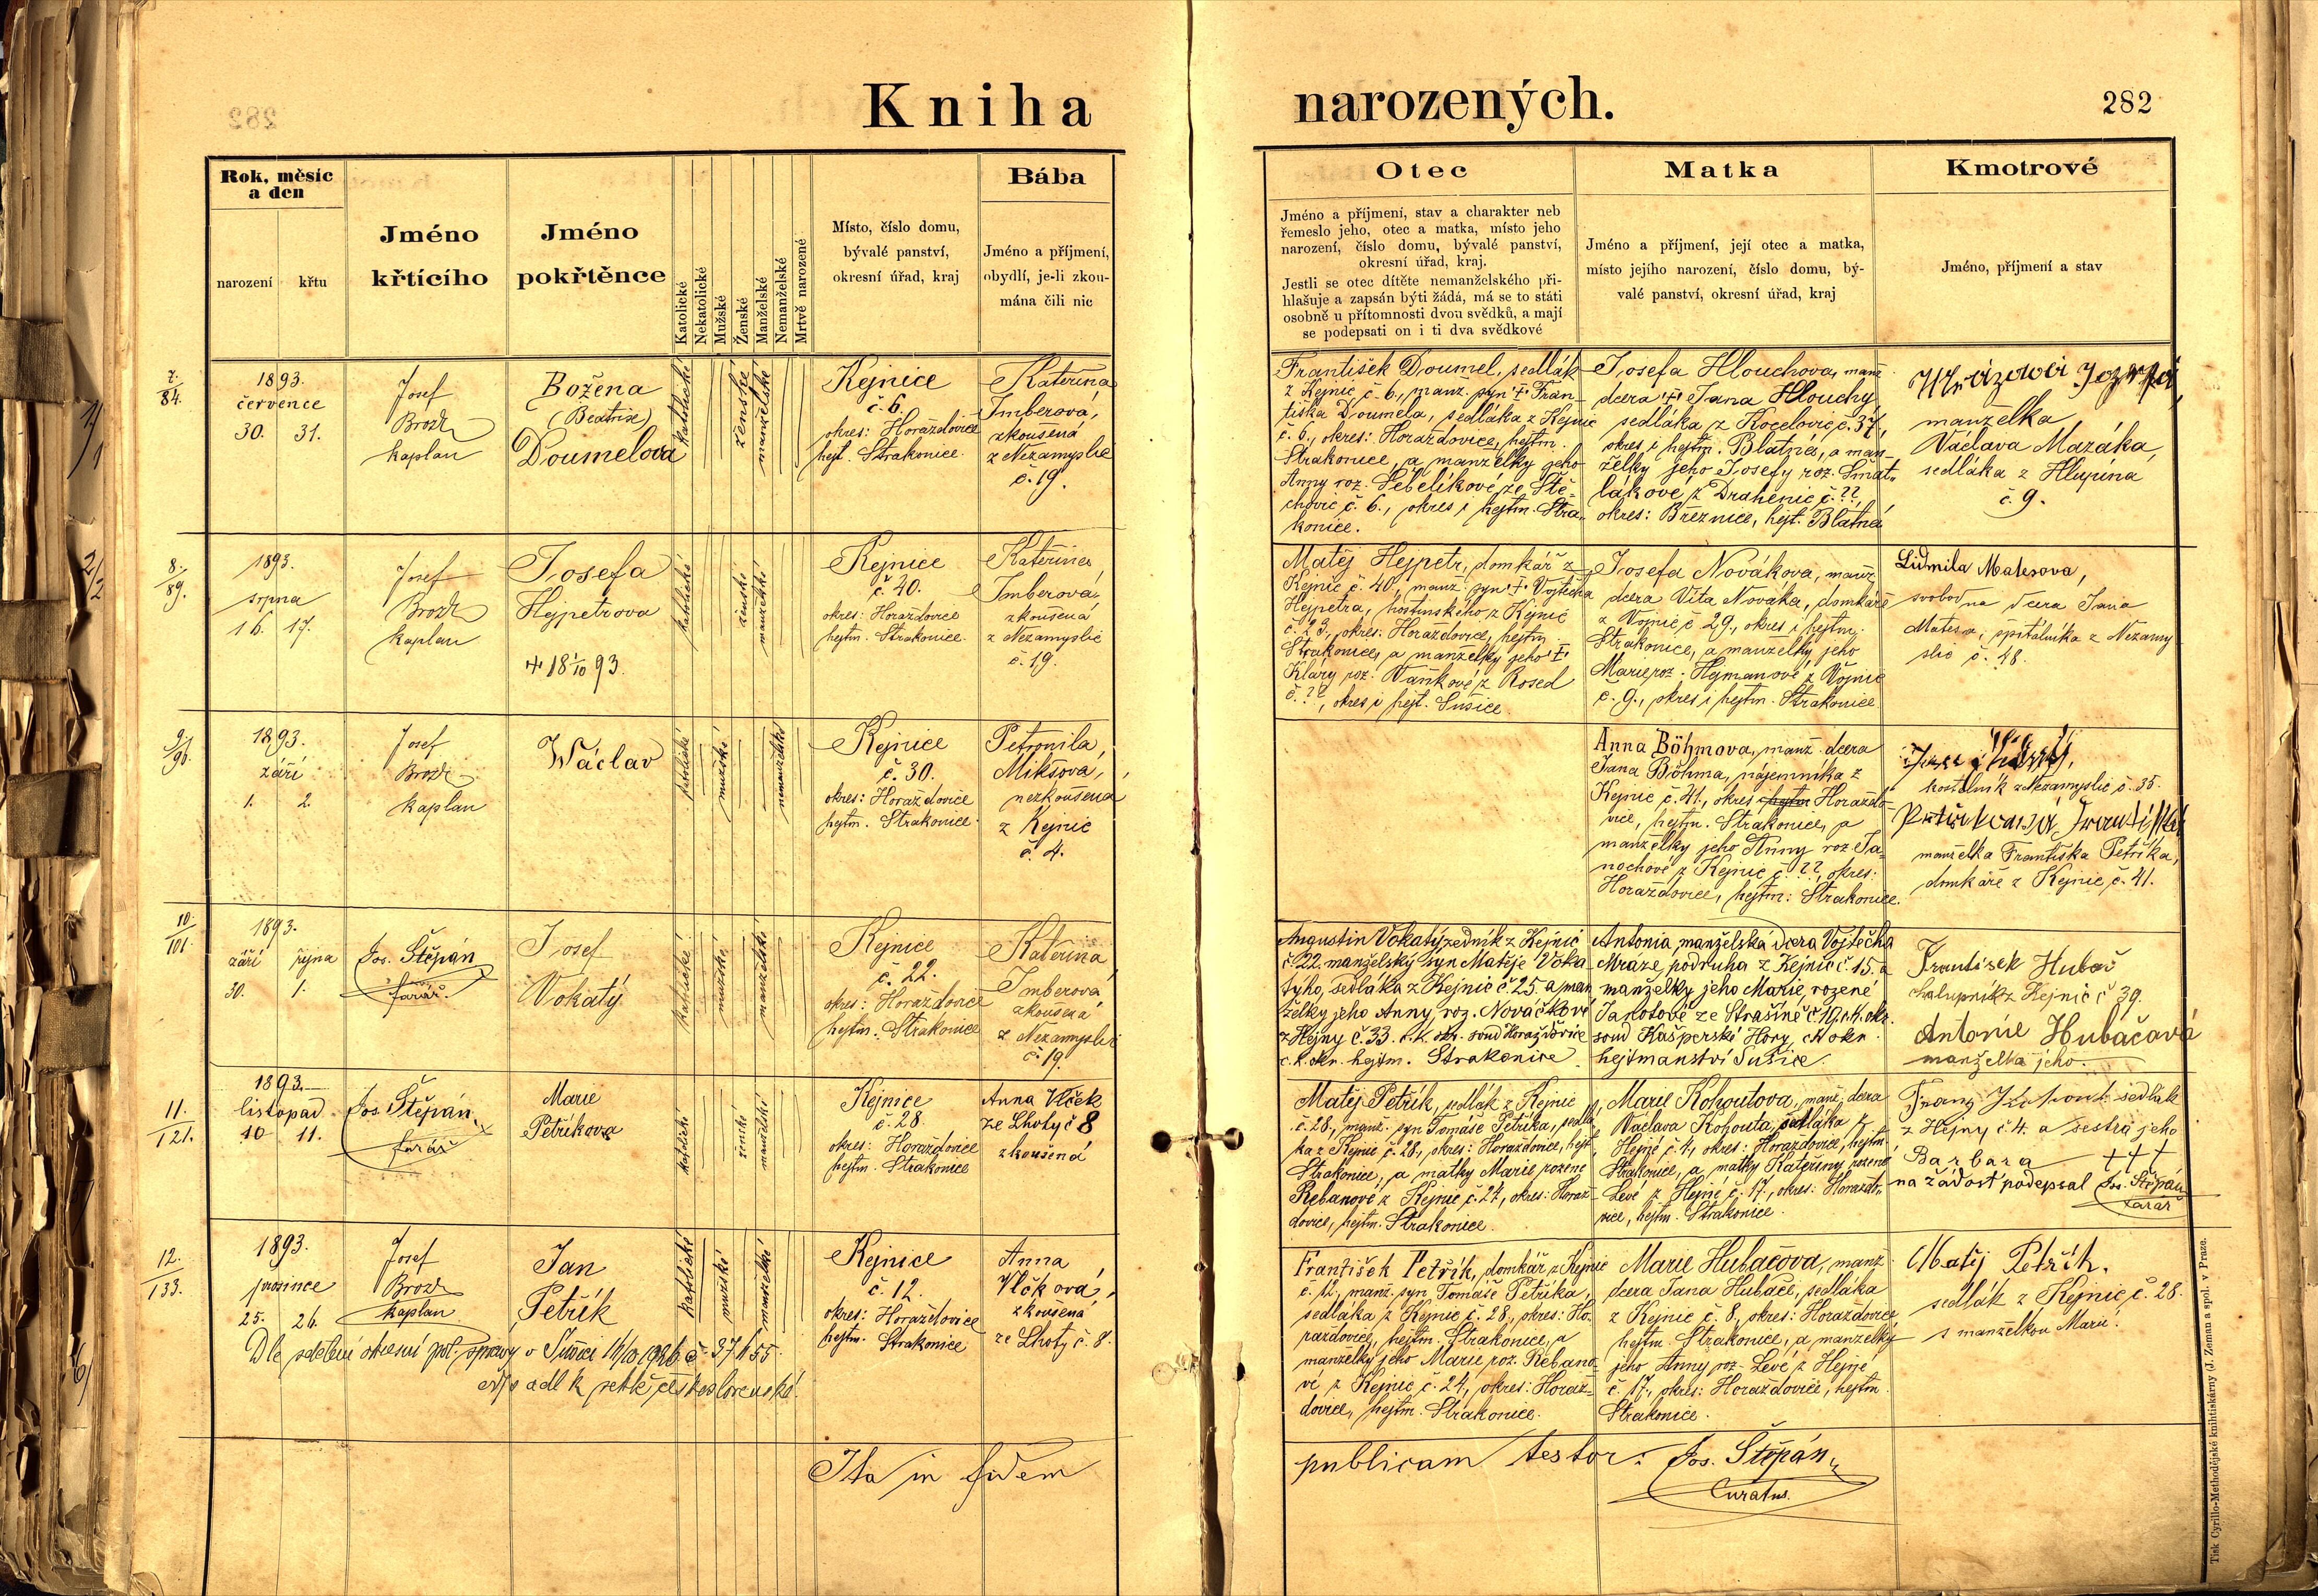 Kniha narozených.
282
Rok, měsíc
a den
narození
křtu
Jméno
křtícího
Jméno
pokřtěnce
Katolické
Nekatolické
Mužské
Ženské
Manželské
Nemanželské
Mrtvě narozené
Místo, číslo domu,
bývalé panství,
okresní úřad, kraj
Bába
Jméno a příjmení,
obydlí, je-li zkou-
mána čili nic
Otec
Jméno a příjmení, stav a charakter neb
řemeslo jeho, otec a matka, místo jeho
narození, číslo domu, bývalé panství,
okresní úřad, kraj.
Jestli se otec dítěte nemanželského při-
hlašuje a zapsán býti žádá, má se to státi
osobně u přítomnosti dvou svědků, a mají
se podepsati on i ti dva svědkové
Matka
Jméno a příjmení, její otec a matka,
místo jejího narození, číslo domu, bý-
valé panství, okresní úřad, kraj
Kmotrové
Jméno, příjmení a stav
7.
84.
1893.
července
30. 31.
Josef
Brož
kaplan
Božena
(Beatrix)
Doumelova
katolické
ženské
manželské
Kejnice
č. 6.
okres: Horažďovice
hejt. Strakonice.
Kateřina
Imberová,
zkoušená
z Nezamyslic
č. 19.
František Doumel, sedlák
z Kejnic č. 6., manž. syn † Fran-
tiška Doumela, sedláka z Kejnic
č. 6., okres: Horažďovice, hejtm.
Strakonice, a manželky jeho
Anny roz. Šebelíkové ze Ště-
chovic č. 6., okres i hejtm. Stra-
konice.
Josefa Hlouchova, manž.
dcera † Jana Hlouchy
sedláka z Kocelovic č. 37,
okres i hejtm. Blatná, a man-
želky jeho Josefy roz. Šmat-
lákové z Drahenic č. ??,
okres: Březnice, hejt. Blatná
manželka
Václava Mazáka,
sedláka z Hlupína
č. 9.
8.
89.
1893.
srpna
16. 17.
Josef
Brož
kaplan
Josefa
Hejpetrova
+ 18 1/10 93.
katolické
ženské
manželské
Kejnice
č. 40.
okres: Horažďovice
hejtm. Strakonice.
Kateřina
Imberová
zkoušená
z Nezamyslic
č. 19.
Matěj Hejpetr, domkář z
Kejnic č. 40., manž. syn † Vojtěcha
Hejpetra, hostinského z Kejnic
č. 23., okres: Horažďovice, hejtm.
Strakonice, a manželky jeho †
Kláry roz. Vaňkové z Rosed
č. ??, okres i hejt. Sušice.
Josefa Novákova, manž.
dcera Víta Nováka, domkáře
z Vojnic č 29., okres i hejtm.
Strakonice, a manželky jeho
Marie roz. Hejmanové z Vojnic
č. 9., okres i hejtm. Strakonice.
Lidmila Matesova,
svobodna dcera Jana
Matesa, špitálníka z Nezamy
slic č. 48.
9.
90.
1893.
září
1. 2.
Josef
Brož
kaplan
Wáclav
katolické
mužské
nemanželské
Kejnice
č. 30.
okres: Horažďovice
hejtm. Strakonice.
Petronila
Mikšová,
nezkoušená
z Kejnic
č. 4.
Anna Böhmova, manž. dcera
Jana Böhma, nájemníka z
Kejnic č. 41., okres hejtm Horažďo-
vice, hejtm. Strakonice, a
manželky jeho Anny roz. Ja-
nochové z Kejnic č. ??, okres:
Horažďovice, hejtm: Strakonice.
kostelník z Nezamyslic č. 35.
manželka Františka Petříka,
domkáře z Kejnic, č. 41.
10.
101.
1893.
září října
30. 1.
Jos. Štěpán
farář.
Josef
Vokatý
katolické
mužské
manželské
Kejnice
č. 22.
okres: Horažďovice
hejtm. Strakonice
Kateřina
Imberová
zkoušená
z Nezamyslic
č. 19.
Augustin Vokatý, zedník z Kejnic
č. 22. manželský syn Matěje Voka-
tyho, sedláka z Kejnic č. 25. a man
želky jeho Anny, roz. Nováčkové
z Hejny č. 33. c. k. okr. soud Horažďovice
c. k. okr. hejtm. Strakonice.
Antonia, manželská dcera Vojtěcha
Mráze, podruha z Kejnic č. 15. a
manželky jeho Marie, rozené
Jarošové ze Strašíně č. 19. c. k. okr.
soud Kašperské Hory, ck okr.
hejtmanství Sušice.
František Hubač
chalupník z Kejnic č 39.
Antonie Hubačavá
manželka jeho.
11.
121.
1893.
listopad
10 11.
Jos. Štěpán
farář
Marie
Petříkova
katolické
ženské
manželské
Kejnice
č. 28.
okres: Horažďovice
hejtm. Strakonice
Anna Vlček
ze Lhoty č 8
zkoušená
Matěj Petřík, sedlák z Kejnic
č. 28., manž. syn Tomáše Petříka, sedlá
ka z Kejnic č. 28., okres: Horažďovice, hejt.
Strakonice, a matky Marie rozené
Řebanové z Kejnic č. 24, okres: Horaž-
ďovice, hejtm. Strakonice.
Marie Kohoutova, manž. dcera
Václava Kohouta, sedláka z
Hejné č. 4., okres: Horažďovice, hejtm.
Strakonice, a matky Kateřiny rozené
Levé z Hejné č. 17., okres: Horažďo-
vice, hejtm. Strakonice.
Franz Kohout sedlák
z Hejny č 4. a sestra jeho
Barbara + + +
na žádost podepsal Jos. Štěpán
farář
12.
133.
1893.
prosince
25. 26.
Josef
Brož
kaplan
Jan
Petřík
katolické
mužské
manželské
Kejnice
č. 12.
okres: Horažďovice
hejtm. Strakonice
Anna
Vlčková,
zkoušená
ze Lhoty č. 8.
Dle sdělení okresní pol. správy v Sušici
František Petřík, domkář z Kejnic
č. 12., manž. syn Tomáše Petříka,
sedláka z Kejnic č. 28., okres: Ho-
ražďovice, hejtm. Strakonice, a
manželky jeho Marie roz. Řebano-
vé z Kejnic č. 24., okres: Horaž-
ďovice, hejtm. Strakonice.
Marie Hubačova, manž.
dcera Jana Hubače, sedláka
z Kejnic č. 8., okres: Horažďovice,
hejtm. Strakonice, a manželky
jeho Anny roz. Levé z Hejné
č. 17., okres: Horažďovice, hejtm.
Strakonice.
Matěj Petřík.
sedlák z Kejnic č. 28.
s manželkou Marií.
Ita in fidem publicam testor: Jos. Štěpán
Curatus.
Tisk Cyrillo-Methodějské knihtiskárny (J. Zeman a spol. v Praze.